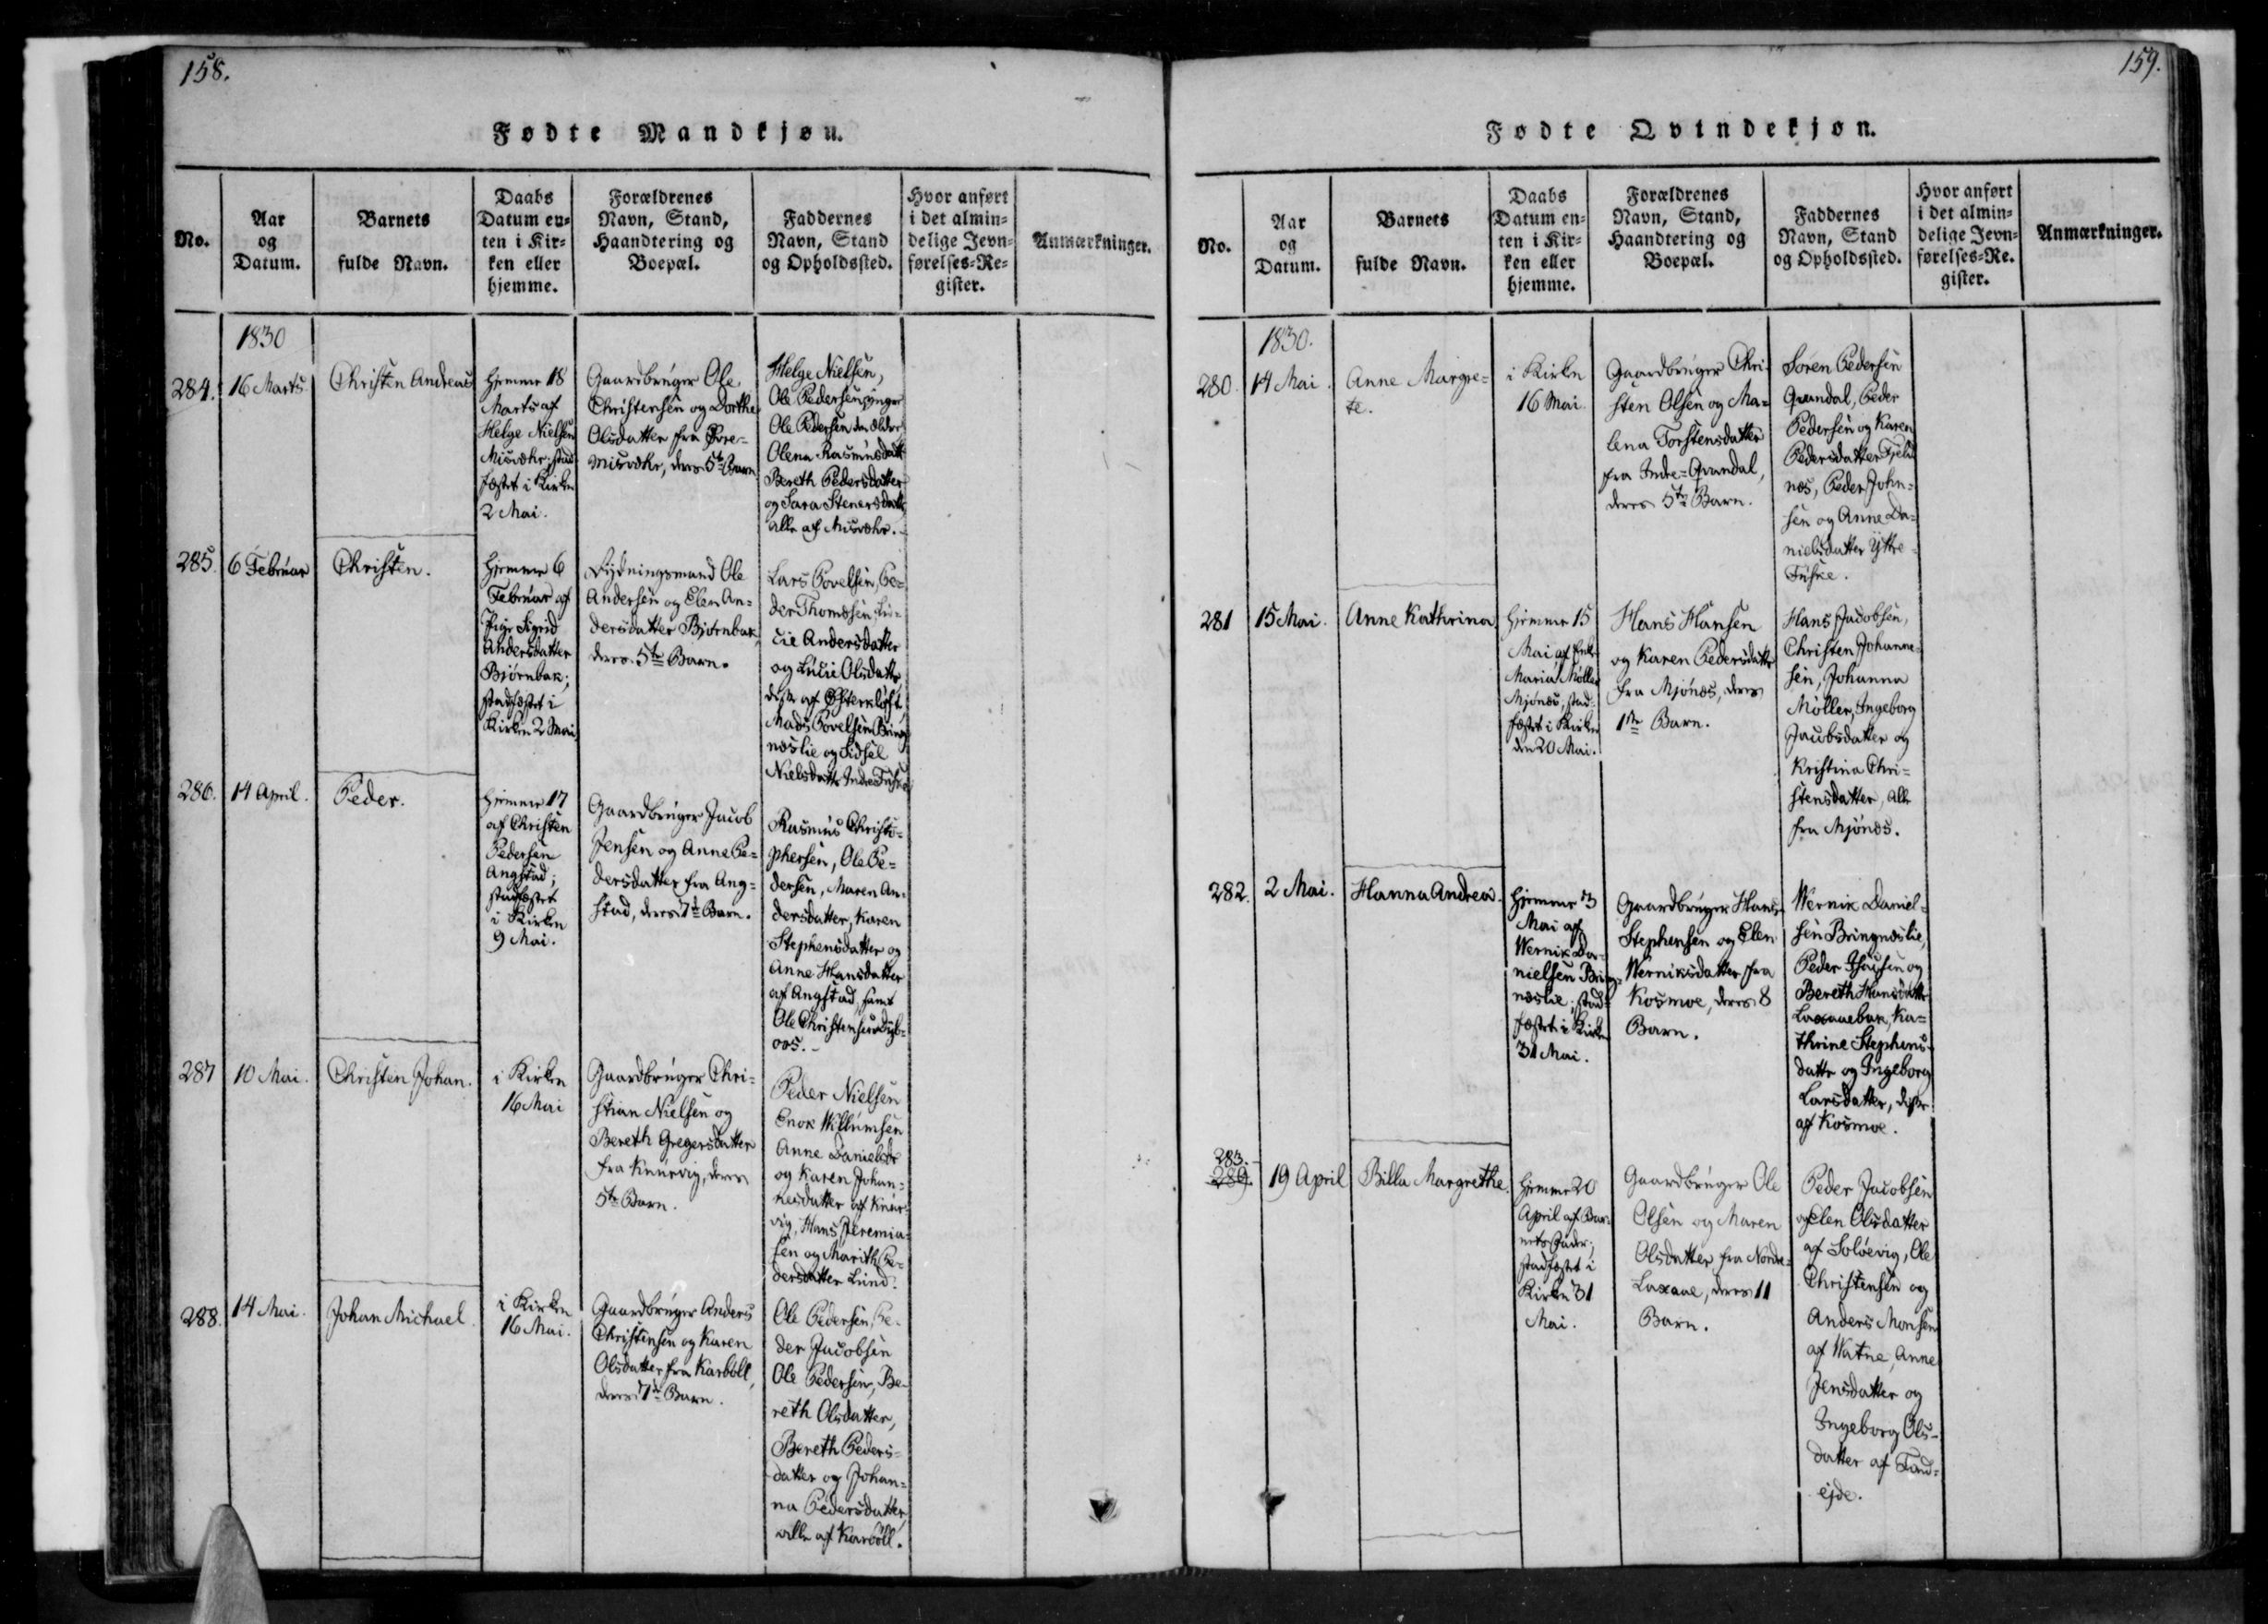 158.
Fødte Mandkjøn.
No.
Aar
og
Datum.
Barnets
fulde Navn.
Daabs
Datum en=
ten i Kir=
ken eller
hjemme.
Forældrenes
Navn, Stand,
Haandtering og
Boepæl.
Faddernes
Navn, Stand
og Opholdssted.
Hvor anført
i det almin=
delige Jevn=
førelses=Re=
gister.
Anmærkninger.
1830
284.
16 Marts
Christen Andreas
hjemme 18
Marts af
Helge Nielsen
Misvæhr; stad
fæstet i Kirken
2 Mai.
Gaardbruger Ole
Christensen og Dorthe
Olsdatter fra
Misvæhr, deres 5te Barn
Helge Nielsen,
Ole Pedersen ynger
Ole Pedersen den ældre
Olena Rasmusdatt
Bereth Pedersdatter
og Sara Stenersdatt
alle af Misvæhr.
285.
6 Februar
Christen.
hjemme 6
Februar af
Pige Sigrid
Andersdatter
Bjørnbak;
stadfæstet i
Kirken 2 Mai
Rydningsmand Ole
Andersen og Elen An=
dersdatter Bjørnbak
deres 5te Barn.
Lars Povelsen, Pe=
der Thomæsen, Lu=
cie Andersdatter
og Lucie Olsdatter
disse af
Mads Povelsen Bring
næslie og Sidsel
Nielsdatter Indre Fuske
286.
14 April.
Peder.
hjemme 17
af Christen
Pedersen
Angstad;
stadfæstet
i Kirken
9 Mai.
Gaardbruger Jacob
Jensen og Anne Pe=
dersdatter fra Ang=
stad, deres 7de Barn.
Rasmus Christo=
phersen, Ole Pe=
dersen, Maren An=
dersdatter, Karen
Stephensdatter og
Anne Hansdatter
af Angstad, samt
Ole Christensen
287
10 Mai.
Christen Johan.
i Kirken
16 Mai
Gaardbruger Chri=
stian Nielsen og
Bereth Gregersdatter
fra Knurvig, deres
5te Barn.
Peder Nielsen
Enok Willumsen
Anne Danielsdr
og Karen Johan=
nesdatter af Knur=
vig, Hans Jeremia=
sen og Marith Pe=
dersdatter Lund.
288.
14 Mai.
Johan Michael
i Kirken
16 Mai.
Gaardbruger Anders
Christensen og Karen
Olsdatter fra Karbøll,
deres 7de Barn.
Ole Pedersen, Pe=
der Jacobsen
Ole Pedersen, Be=
reth Olsdatter,
Bereth Peders=
datter og Johan=
na Pedersdatter,
alle af Karbøll.
159.
Fødte Qvindekjøn.
No.
Aar
og
Datum.
Barnets
fulde Navn.
Daabs
Datum en=
ten i Kir=
ken eller
hjemme.
Forældrenes
Navn, Stand,
Haandtering og
Boepæl.
Faddernes
Navn, Stand
og Opholdssted.
Hvor anført
i det almin=
delige Jevn=
førelses=Re.
gister.
Anmærkninger.
1830.
280.
14 Mai.
Anne Margre=
te.
i Kirken
16 Mai.
Gaardbruger Chri=
sten Olsen og Ma=
lena Torstensdatter
fra Indre=Qvandal,
deres 5te Barn.
Søren Pedersen
Qvandal, Peder
Pedersen og Karen
Pedersdatter
næs, Peder John=
sen og Anne Da=
nielsdatter Yttre=
Fuske.
281
15 Mai.
Anne Kathrina
hjemme 15
Mai af Enke
Maria Møller
Mjønæs, stad=
fæstet i Kirken
den 20 Mai.
Hans Hansen
og Karen Pedersdatter
fra Mjønæs, deres
1ste Barn.
Hans Jacobsen,
Christen Johanne=
sen, Johanna
Møller, Ingeborg
Jacobsdatter og
Kristina Chri=
stensdatter, alle
fra Mjønæs.
282.
2 Mai.
Hanna Andrea.
hjemme 3
Mai af
Wernik Da=
nielsen Bring=
næslie; stad=
fæstet i Kirken
31 Mai.
Gaardbruger Hans
Stephensen og Elen
Werniksdatter fra
Kosmoe, deres 8
Barn.
Wernik Daniel=
sen Bringnæslie,
Peder og
Bereth Hansdatter
Laxaaebak, Ka=
thrine Stephens=
datter og Ingeborg
Larsdatter, disse
af Kosmoe.
283.
289.
19 April
Billa Margrethe.
hjemme 20
April af Bar
nets Fader;
stadfæstet i
Kirken 31
Mai.
Gaardbruger Ole
Olsen og Maren
Olsdatter fra Nordre=
Laxaae, deres 11
Barn.
Peder Jacobsen
og Elen Olsdatter
af Soløevig, Ole
Christensen og
Anders Monsen
af Watne, Anne
Jensdatter og
Ingeborg Ols=
datter af Fand=
ejde.